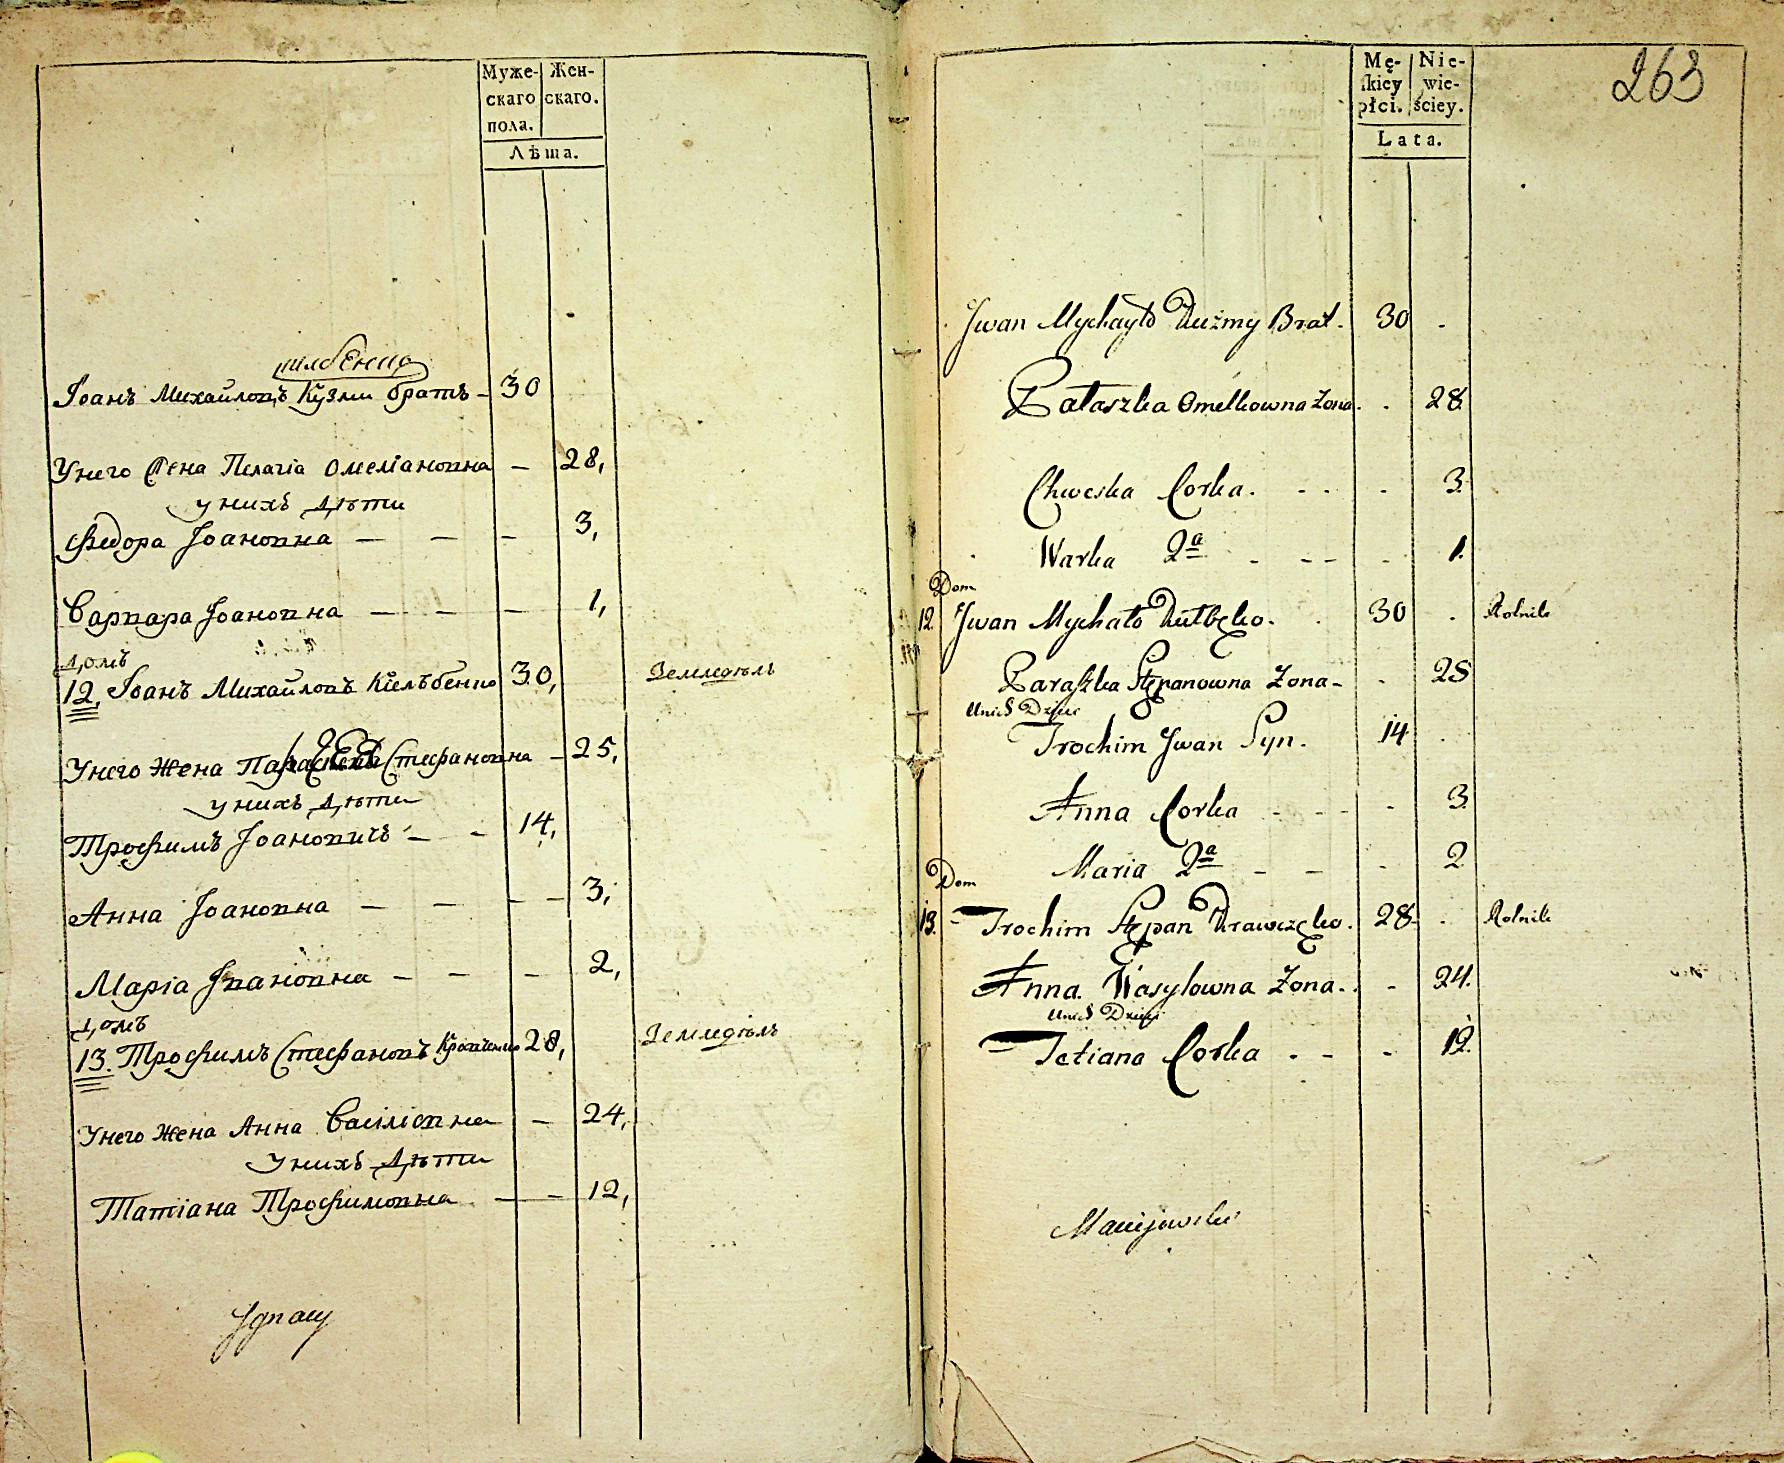 Муже- Жен-
скаго скаго.
пола.
Лѣта.
Іоанъ Михайловъ Кузми братъ - 30
Унего Жена Пелагіа Омеліановна - 28,
у нихъ Дѣти
Федора Іоановна - - - 3,
Варвара Іоановна - - - 1,
Домъ
12, Іоанъ Михайловъ Кулъбенко 30, Земледѣлъ
Унего Жена Стефановна - 25,
у нихъ Дѣти
Трофимъ Іоановичъ - - 14,
Анна Іоановна - - - - 3,
Маріа Івановна - - - 2,
Домъ
13. Трофимъ Стефановъ 28, Земледѣлъ
Унего Жена Анна Василіовна - 24,
У нихъ Дѣти
Татіана Трофимовна - - 12,
Ignacy
263
Mę- Nie-
skiey wie-
płci. ściey.
Lata.
Iwan Mychayło Kuzmy Brat. 30 .
Pałaszka Omelkowna Zona. . 28.
Chweska Corka. - - . 3.
Warka 2a - - - . 1.
Dom
12. Iwan Mychało Kulbęko. . 30 . Rolnik
Paraszka Stępanowna Zona - . 25
Unich Dzieci
Trochim Iwan Syn. 14 .
Anna Corka - - - . 3.
Maria 2a - - . 2
Dom
13. Trochim Stępan Krawczęko. 28. . Rolnik
Anna Wasylowna Zona. . - 24.
Unich Dzieci
Tetiana Corka . - - 12.
Maciejowski